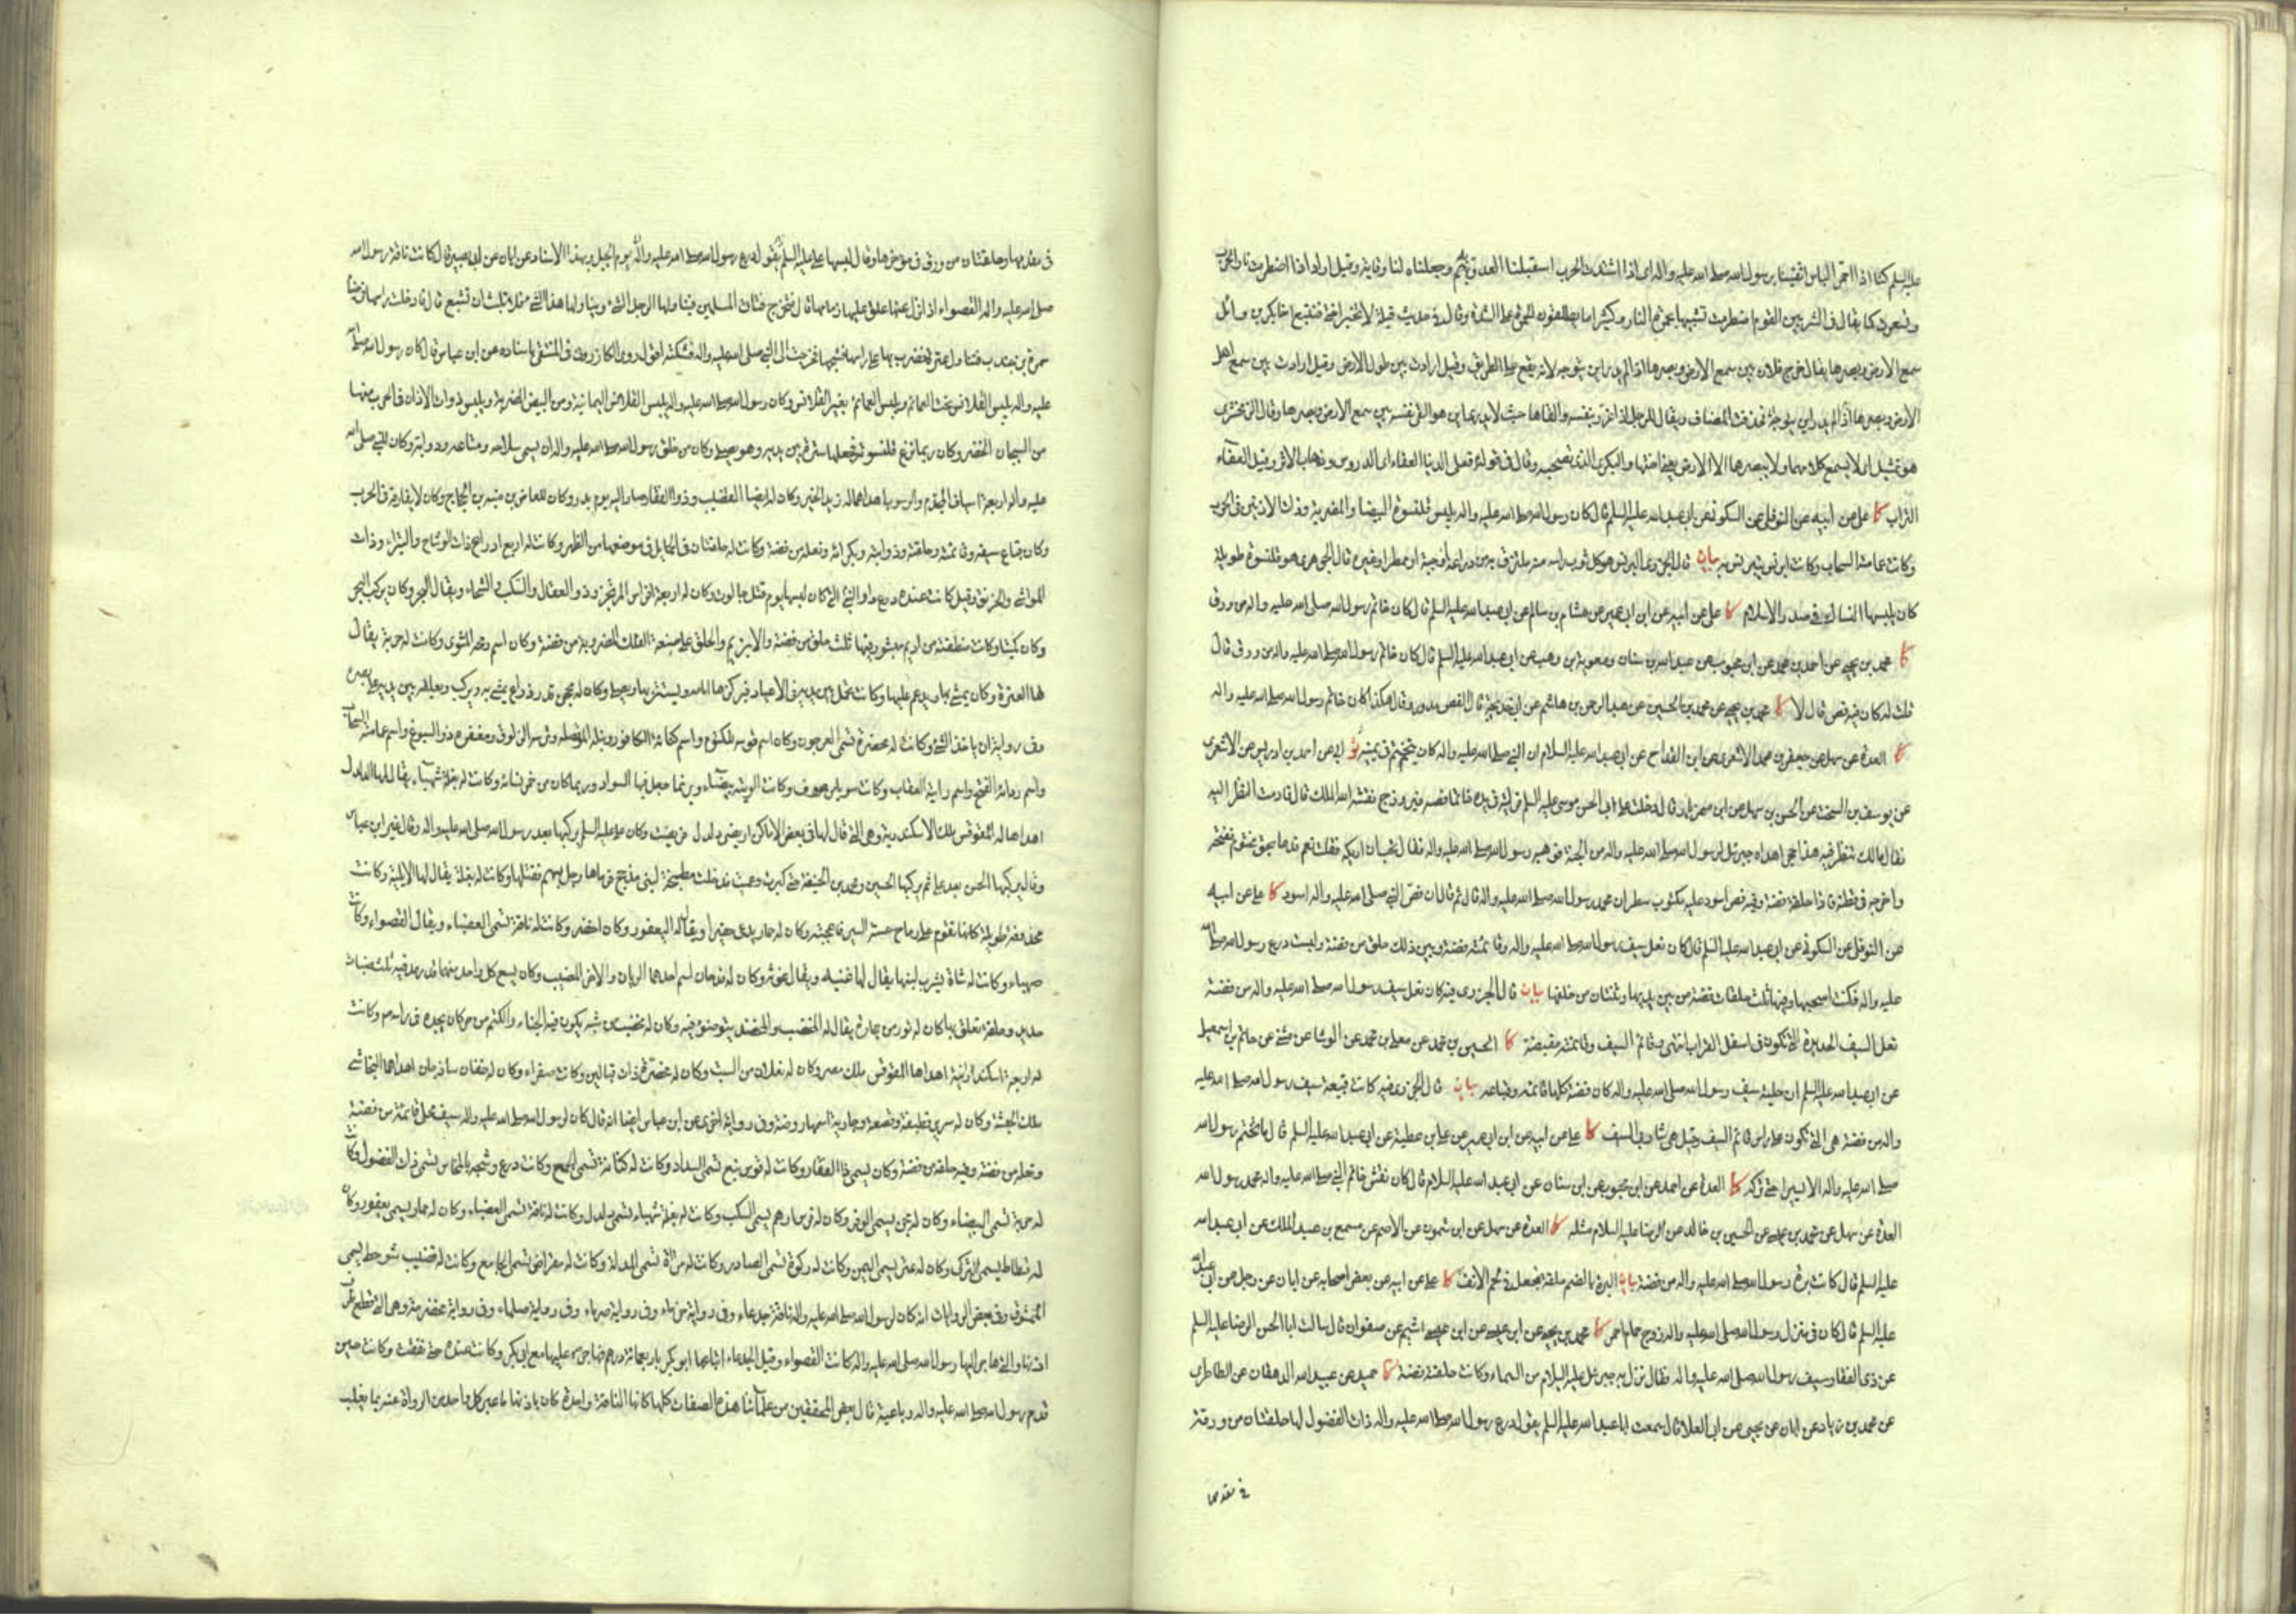 عليه السلم كنا اذا احمر الباس اتقينا برسول الله صلى الله عليه واله اى اذا اشتدت الحرب استقبلنا العدو به وجعلناه لنا وقاية وقيل اراد اذا اضطرمت نار الحرب
وتسعرت كما يقال فى الشر بين القوم اضطرمت نارهم تشبيها بحمرة النار وكثيرا ما يطلقون الحمرة على الشدة وقال فى حديث قيلة لا تخبر اختى فتتبع اخا بكر بن وائل
سمع الارض وبصرها يقال خرج فلان بين سمع الارض وبصرها اذا لم يدر اين يتوجه لانه يقع على الطريق وقيل ارادت بين طول الارض وقيل ارادت بين سمع اهل
الارض وبصرها فحذفت المضاف ويقال للرجل اذا غرر بنفسه والقاها حيث لا يدرى اين هو القى نفسه بين سمع الارض وبصرها وقال الزمخشرى
هو تمثيل اى لا يسمع كلامهما ولا يبصرهما الا الارض يعنى اختها والبكرى الذى تصحبه وقال فى قوله فعلى الدنيا العفاء اى الدروس وذهاب الاثر وقيل العفاء
التراب كا على عن ابيه عن النوفلى عن السكونى عن ابى عبد الله عليه السلم قال كان رسول الله صلى الله عليه واله يلبس قلنسوة البيضا والمضربة وذات الاذنين فى الحرب
وكانت عمامته السحاب وكانت له برنس يتبرنس به بيان قال الجزرى البرنس هو كل ثوب راسه منه ملتزق به من دراعة او جبة او ممطر او غيره قال الجوهرى هو قلنسوة طويلة
كان يلبسها النساك فى صدر الاسلام كا على عن ابيه عن ابن ابى عمير عن هشام بن سالم عن ابى عبد الله عليه السلم قال كان خاتم رسول الله صلى الله عليه واله من ورق
كا محمد بن يحيى عن احمد بن محمد عن ابن محبوب عن عبد الله بن سنان ومعوية بن وهب عن ابى عبد الله عليه السلم قال كان خاتم رسول الله صلى الله عليه واله من ورق قال
قلت له كان فيه فص قال لا كا محمد بن يحيى عن محمد بن الحسين عن عبد الرحمن بن هاشم عن ابى خديجة قال الفص مدور وقال هكذا كان خاتم رسول الله صلى الله عليه واله
كا العدة عن سهل عن جعفر بن محمد الاشعرى عن ابن القداح عن ابى عبد الله عليه السلام ان النبى صلى الله عليه واله كان يتختم فى يمينه ابى عن احمد بن ادريس عن الاشعرى
عن يوسف بن السخت عن الحسن بن سهل عن ابن مهزيار قال دخلت على ابى الحسن موسى عليه السلم فرايت فى يده خاتما فصه فيروزج نقشه الله الملك قال فادمت النظر اليه
فقال ما لك تنظر فيه هذا حجر اهداه جبرئيل لرسول الله صلى الله عليه واله من الجنة فوهبه رسول الله صلى الله عليه واله
كا على عن ابيه
عن النوفلى عن السكونى عن ابى عبد الله عليه السلم قال كان نعل سيف رسول الله صلى الله عليه واله وقائمته فضة وبين ذلك حلق من فضة ولبست درع رسول الله صلى الله
عليه واله فكنت اسحبها وفيها ثلث حلقات فضة من بين يديها وثنتان من خلفها بيان قال الجزرى فيه كان نعل سيف رسول الله صلى الله عليه واله من فضة
نعل السيف الحديدة التى تكون فى اسفل القراب انتهى وقائم السيف وقائمته مقبضه كا الحسين بن محمد عن معلى بن محمد عن الوشا عن مثنى عن حاتم بن اسمعيل
عن ابى عبد الله عليه السلم ان حلية سيف رسول الله صلى الله عليه واله كان فضة كلها قائمته وقباعه بيان قال الجزرى فيه كانت قبيعة سيف رسول الله صلى الله عليه
واله من فضة هى التى تكون على راس قائم السيف وقيل هى شاربى السيف كا على عن ابيه عن ابن ابى عمير عن على بن عطية عن ابى عبد الله عليه السلم قال ما تختم رسول الله
صلى الله عليه واله الا يسيرا حتى تركه كا العدة عن احمد عن ابن محبوب عن ابن سنان عن ابى عبد الله عليه السلام قال كان نقش خاتم النبى صلى الله عليه واله محمد رسول الله
العدة عن سهل عن محمد بن عيسى عن الحسين بن خالد عن الرضا عليه السلام مثله كا العدة عن سهل عن ابن شمون عن الاصم عن مسمع بن عبد الملك عن ابى عبد الله
عليه السلم قال كانت برة رسول الله صلى الله عليه واله من فضة بيان البرة بالضم حلقة تجعل فى لحم الانف كا على عن ابيه عن بعض اصحابه عن ابان عن رجل عن ابى عبد الله
عليه السلم قال كان فى منزل رسول الله صلى الله عليه واله زوج حمام احمر كا محمد بن يحيى عن ابن عيسى عن ابن ابى اشيم عن صفوان قال سالت ابا الحسن الرضا عليه السلم
عن ذى الفقار سيف رسول الله صلى الله عليه واله فقال نزل به جبرئيل عليه السلام من السماء وكانت حلقته فضة كا حميد عن عبيد الله الدهقان عن الطاطرى
عن محمد بن زياد عن ابان عن يحيى عن ابى العلا قال سمعت ابا عبد الله عليه السلم يقول درع رسول الله صلى الله عليه واله ذات الفضول لها حلقتان من ورق
فى مقدمها
فى مقدمها وحلقتان من ورق فى مؤخرها وقال لبسها على عليه السلم يوم الجمل بهذا الاسناد عن ابان عن ابى بصير قال كانت ناقة رسول الله
صلى الله عليه واله القصواء اذا نزل عنها علق عليها زمامها قال فتخرج فتاتى المسلمين فيناولها الرجل الشىء ويناولها هذا الشىء فلا تلبث ان تشبع قال فادخلت راسها فى خباء
سمرة بن جندب فتناول عنزة فضرب بها على راسها فشجها فخرجت الى النبى صلى الله عليه واله فشكته اقول روى الكازرونى فى المنتقى باسناده عن ابن عباس قال كان رسول الله صلى الله
عليه واله يلبس القلانس تحت العمائم ويلبس العمائم بغير القلانس وكان رسول الله صلى الله عليه واله يلبس القلانس اليمانية ومن البيض المضربة ويلبس ذوات الاذان فى الحرب منها
من السيجان الخضر وكان ربما نزع قلنسوته فجعلها سترة بين يديه وهو يصلى وكان من خلق رسول الله صلى الله عليه واله ان يسمى سلاحه ومتاعه ودوابه وكان للنبى صلى الله
عليه واله اربعة اسياف المخذم والرسوب اهداهما له زيد الخير وكان له ايضا القضيب وذو الفقار صار اليه يوم بدر وكان للعاص بن منبه بن الحجاج وكان لا يفارقه فى الحرب
وكان قباع سيفه وقائمته وحلقته وذوابته وبكراته ونعله من فضة وكانت له حلقتان فى الحمايل فى موضعها من الظهر وكانت له اربع ادراع ذات الوشاح والبتراء وذات
المواشى والخرنق وقيل كانت عنده درع داود التى كان لبسها يوم قتل جالوت وكان له اربعة افراس المرتجز وذو العقال والسكب والشحاء ويقال البحر
وكان كميتا وكانت منطقته من اديم مبشور فيها ثلث حلق من فضة والابزيم والحلق على صنعة الفلك المضروبة من فضة وكان اسم رمحه المثوى وكانت له حربة يقال
لها العنزة وكان يمشى بها ويدعم عليها وكانت تحمل بين يديه فى الاعياد فيركزها امامه ويستتر بها ويصلى وكان له محجن قدر ذراع يمشى به ويركب ويعلقه بين يديه على بعيره
وكانت له مخصرة تسمى العرجون وكان اسم قوسه الكتوم واسم كنانته الكافور ونبله الموتصلة وترسه الزلوق ومغفره ذو السبوغ واسم عمامته السحاب
واسم ردائه الفتح واسم رايته العقاب وكانت سوداء من صوف وكانت الويته بيضاء وربما جعل فيها السواد وربما كان من خمر نسائه وكانت له بغلة شهباء يقال لها الدلدل
اهداها له المقوقس ملك الاسكندرية وهى التى قال لها فى بعض الاماكن اربضى دلدل فربضت وكان على عليه السلم يركبها بعد رسول الله صلى الله عليه واله وقال غير ابن عباس
وقال ركبها الحسن بعد على ثم ركبها الحسين ومحمد بن الحنفية حتى كبرت وعميت فدخلت مطبخة لبنى مذحج فرماها رجل بسهم فقتلها وكانت له بغلة يقال لها الايلية وكانت
محذوفة طويلة كانها تقوم على رماح حسنة السير فاعجبته وكان له حمار يدعى عفيرا ويقال له اليعفور وكان اخضر وكانت له ناقة تسمى العضباء ويقال القصواء وكانت
صهباء وكانت له شاة يشرب لبنها يقال لها غيثة ويقال غوثة وكان له قدحان اسم احدهما الريان والاخر المضبب وكان يسع كل واحد منهما قدر مد فيه ثلث ضبات
حديد وحلقة تعلق بها وكان له تور من حجارة يقال له المخضب يتوضؤ فيه وكان له مخضب من شبه يكون فيه الحناء والكتم من حر كان يجده فى راسه وكانت
له ربعة اسكندرانية اهداها المقوقس ملك مصر وكان له نعلان من السبت وكان له مخصرة ذات قبالين وكانت صفراء وكان له خفان ساذجان اهداهما النجاشى
ملك الحبشة وكان له سرير وقطيفة وقصعة وجارية اسمها روضة وفى رواية اخرى عن ابن عباس ايضا انه قال كان لرسول الله صلى الله عليه واله سيف محلى قائمته من فضة
ونعله من فضة وفيه حلق من فضة وكان يسمى ذا الفقار وكانت له قوس نبع تسمى السداد وكانت له كنانة تسمى الجمع وكانت درع وشحة بالنحاس تسمى ذات الفضول وكانت
له حربة تسمى البيضاء وكان له مجن يسمى الوفر وكان له فرس ادهم يسمى السكب وكانت له بغلة شهباء تسمى دلدل وكانت له ناقة تسمى العضباء وكان له حمار يسمى يعفور وكان
له فسطاط يسمى التركى وكان له عنز يسمى اليمن وكانت له ركوة تسمى الصادر وكانت له مراة تسمى المدلة وكانت له مقراض تسمى الجامع وكانت له قضيب شوحط يسمى
الممشوق وفى بعض الروايات انه كان لرسول الله صلى الله عليه واله ناقة جدعاء وفى رواية خرماء وفى رواية صرماء وفى رواية صلماء وفى رواية مخضرمة وهى التى قطع طرف
اذنها والتى هاجر عليها رسول الله صلى الله عليه واله كانت القصواء وقيل الجدعاء ابتاعها ابو بكر باربعمائة درهم فهاجر عليها مع ابى بكر وكانت عنده حتى نفقت وكانت حين
قدم رسول الله صلى الله عليه واله رباعية قال بعض المحققين من علمائنا هذه الصفات كلها كانها لناقة واحدة كان باذنها ما عبر كل واحد من الرواة عنه بما يغلب